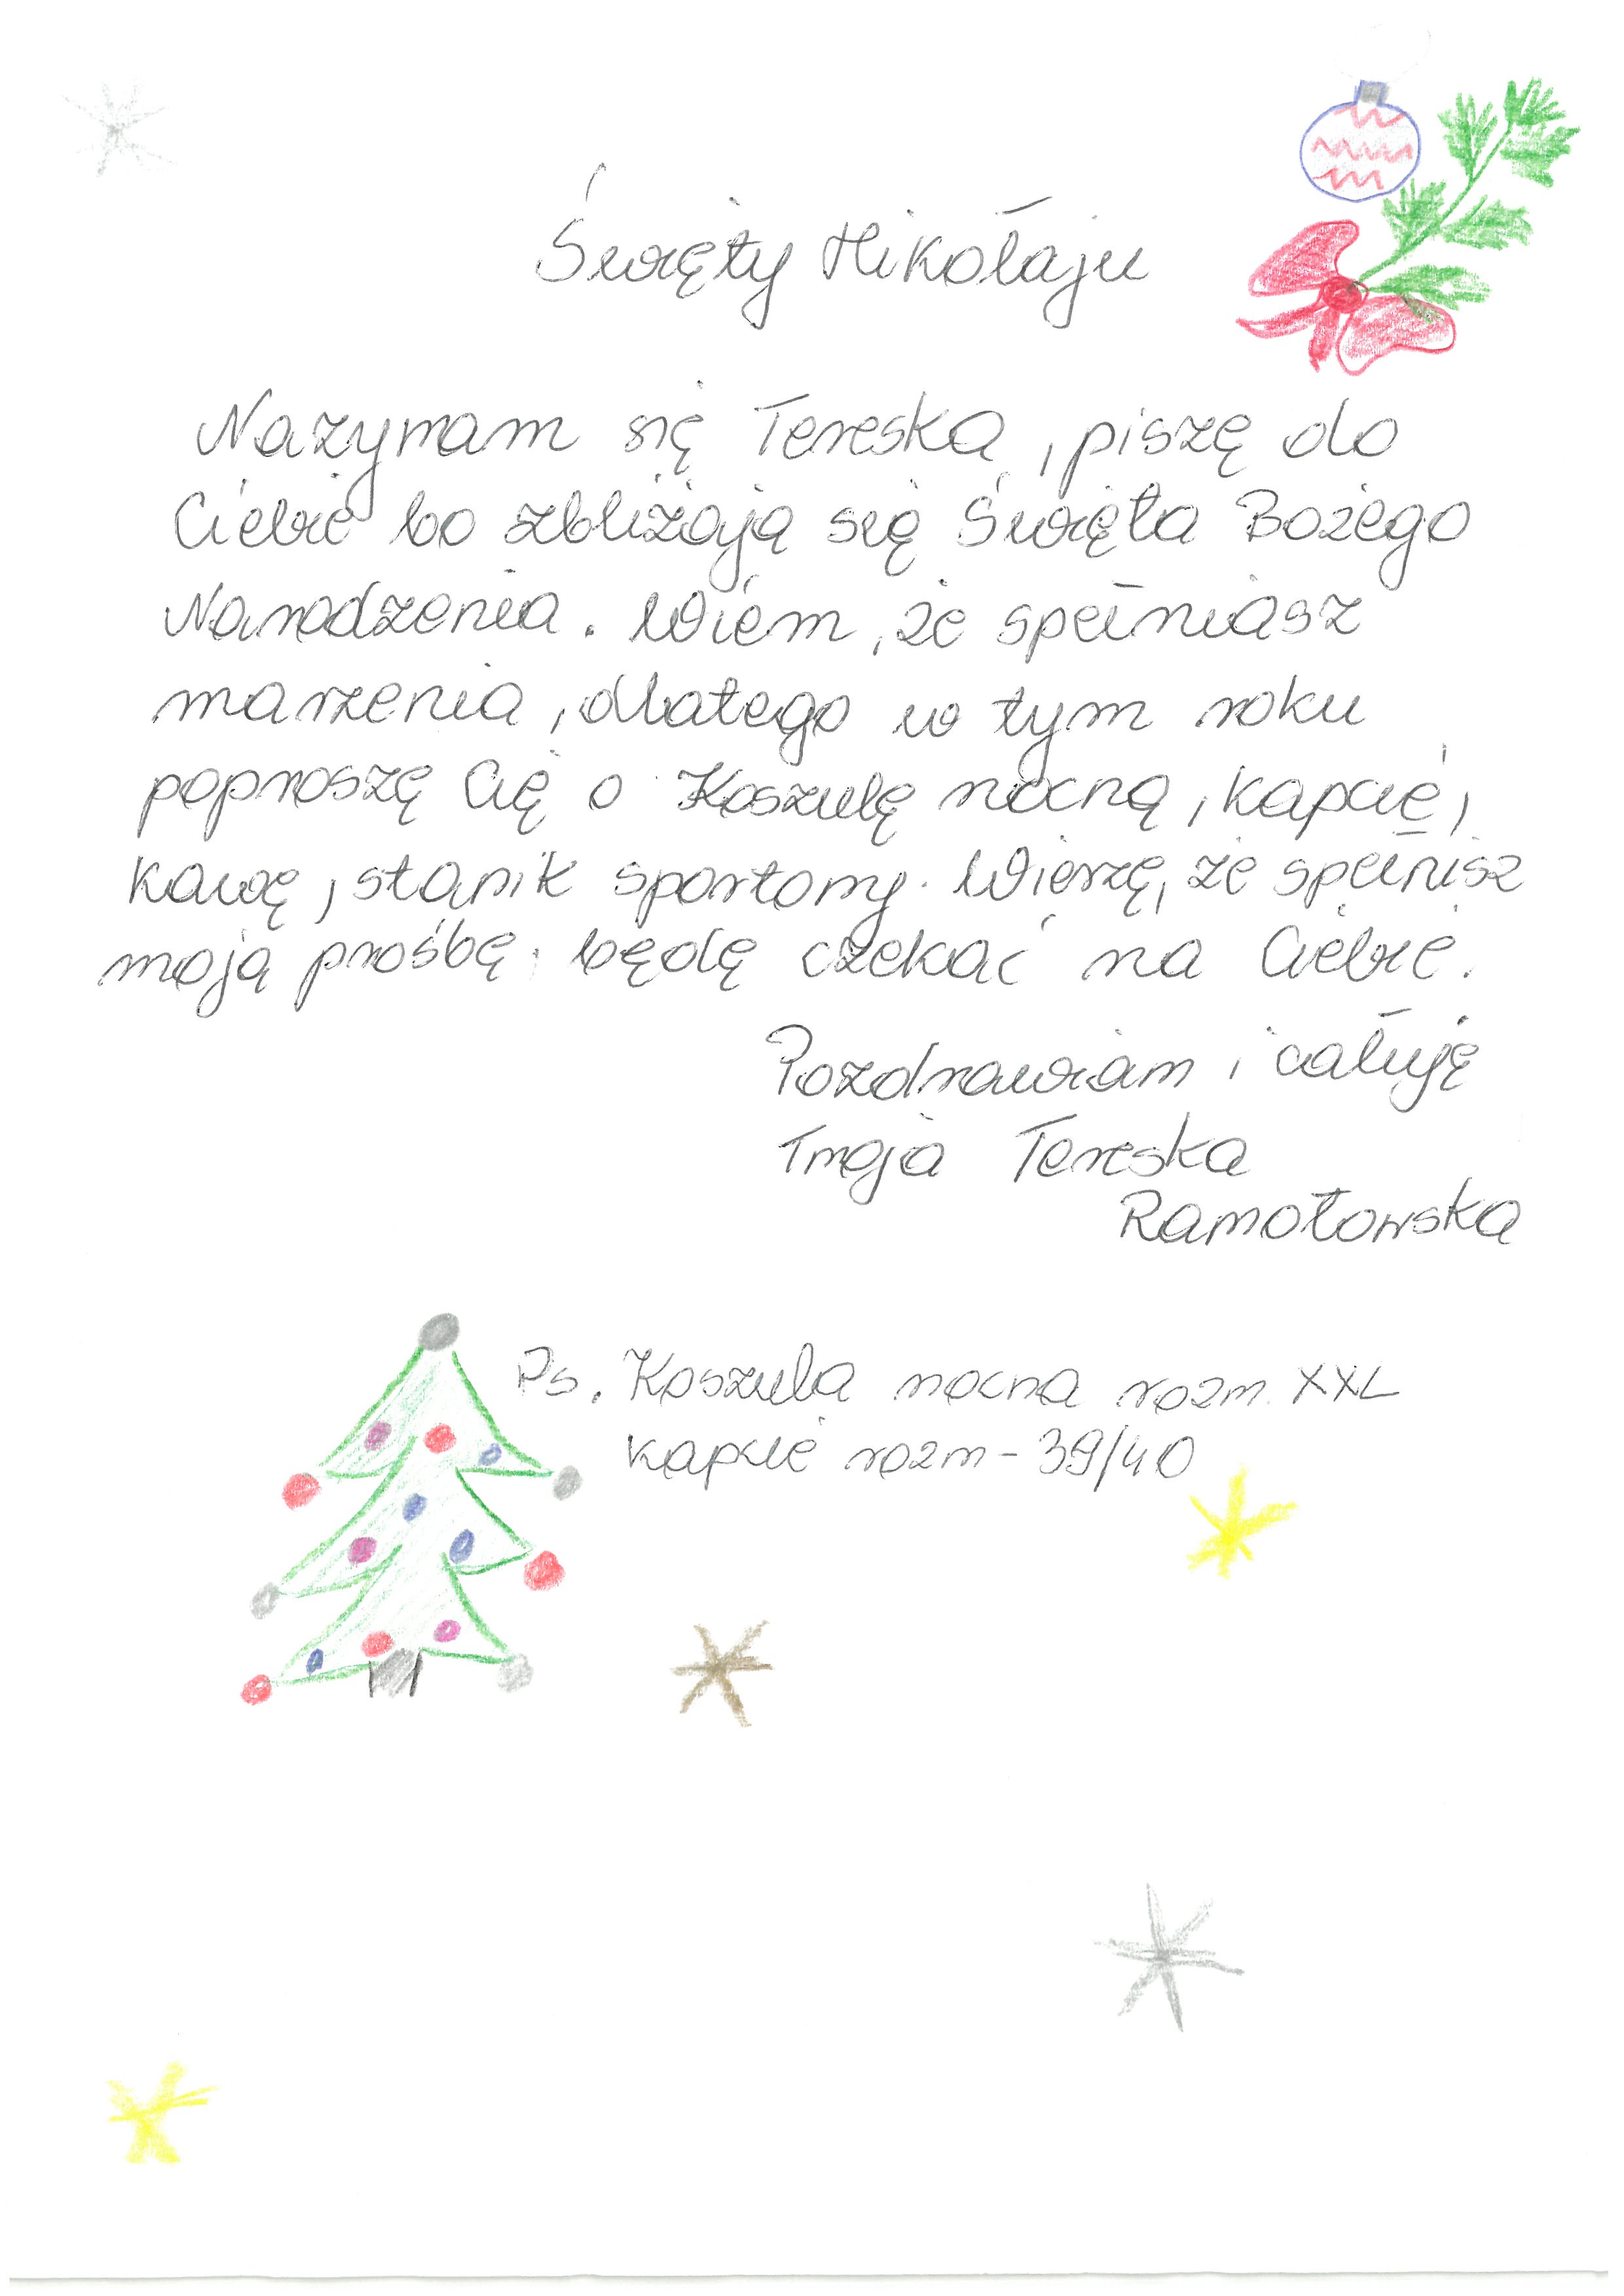 Święty Mikołaju
Nazywam się Tereska, piszę do
Ciebie bo zbliżają się Święta Bożego
Narodzenia. Wiem, że spełniasz
marzenia, dlatego w tym roku
poproszę Cię o Koszulę nocną, kapcie,
kawę, stanik sportowy. Wierzę, że spełnisz
moją prośbę, będę czekać na Ciebie.
Pozdrawiam i całuję
Twoja Tereska
Ramotowska
Ps. Koszula nocna rozm. XXL
kapcie rozm - 39/40